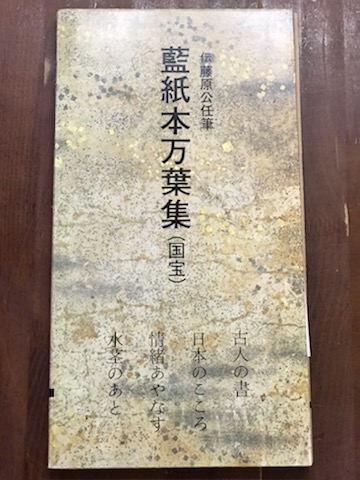 伝藤原公任筆
藍紙本万葉集(国宝)
古人の書
日本のこころ
情緒あやなす
水茎のあと